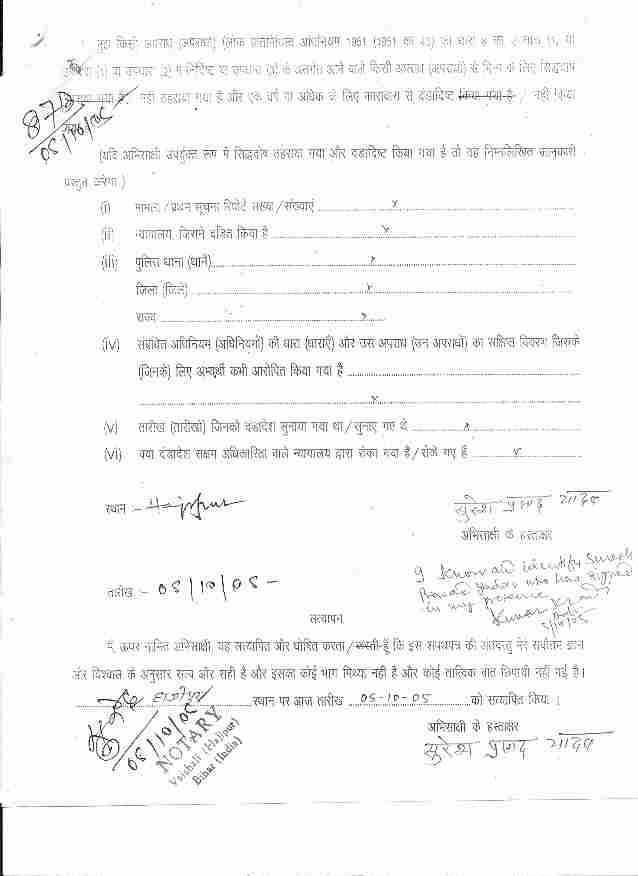 मुझे किसी अपराध (अपराधों) (लोक प्रतिनिधित्व अधिनियम 1951 (1951 का 43) की धारा 8 की उपधारा (1) या
उपधारा (1) या उपधारा (2) में निर्दिष्ट या उपधारा (3) के अंतर्गत आने वाले किसी अपराध (अपराधों) से भिन्न के लिए सिद्धदोष
ठहराया गया है / नहीं ठहराया गया है और एक वर्ष या अधिक के लिए कारावास से दंडादिष्ट किया गया है / नहीं किया
05/10/05
(यदि अभिसाक्षी उपर्युक्त रूप में सिद्धदोष ठहराया गया और दंडादिष्ट किया गया है तो वह निम्नलिखित जानकारी
प्रस्तुत करेगा)
(i) मामला / प्रथम सूचना रिपोर्ट संख्या / संख्याएं x
(ii) न्यायालय जिसने दंडित किया है x
(iii) पुलिस थाना (थाने) x
जिला (जिले) x
राज्य x
(iv) संबंधित अधिनियम (अधिनियमों) की धारा (धाराएँ) और उस अपराध (उन अपराधों) का संक्षिप्त विवरण जिसके
(जिनके) लिए अभ्यर्थी कभी आरोपित किया गया है
x
(v) तारीख (तारीखें) जिनको दंडादेश सुनाया गया था / सुनाए गए थे x
(vi) क्या दंडादेश सक्षम अधिकारिता वाले न्यायालय द्वारा रोका गया है / रोके गए हैं x
स्थान :- Hajipur
सुरेश प्रसाद यादव
अभिसाक्षी के हस्ताक्षर
I know and identify Suresh
Prasad Yadav who has signed
in my presence
तारीख :- 05/10/05-
सत्यापन
मैं, ऊपर नामित अभिसाक्षी, यह सत्यापित और घोषित करता / करती हूँ कि इस शपथपत्र की अंतर्वस्तु मेरे सर्वोत्तम ज्ञान
और विश्वास के अनुसार सत्य और सही है और इसका कोई भाग मिथ्या नहीं है और कोई तात्विक बात छिपायी नहीं गई है।
हाजीपुर स्थान पर आज तारीख 05-10-05 को सत्यापित किया ।
अभिसाक्षी के हस्ताक्षर
सुरेश प्रसाद यादव
05/10/05
NOTARY
Vaishali (Hajipur)
Bihar (India)